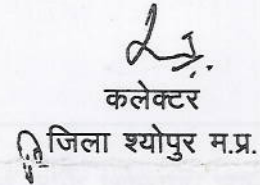 कलेक्टर
जिला श्योपुर म.प्र.